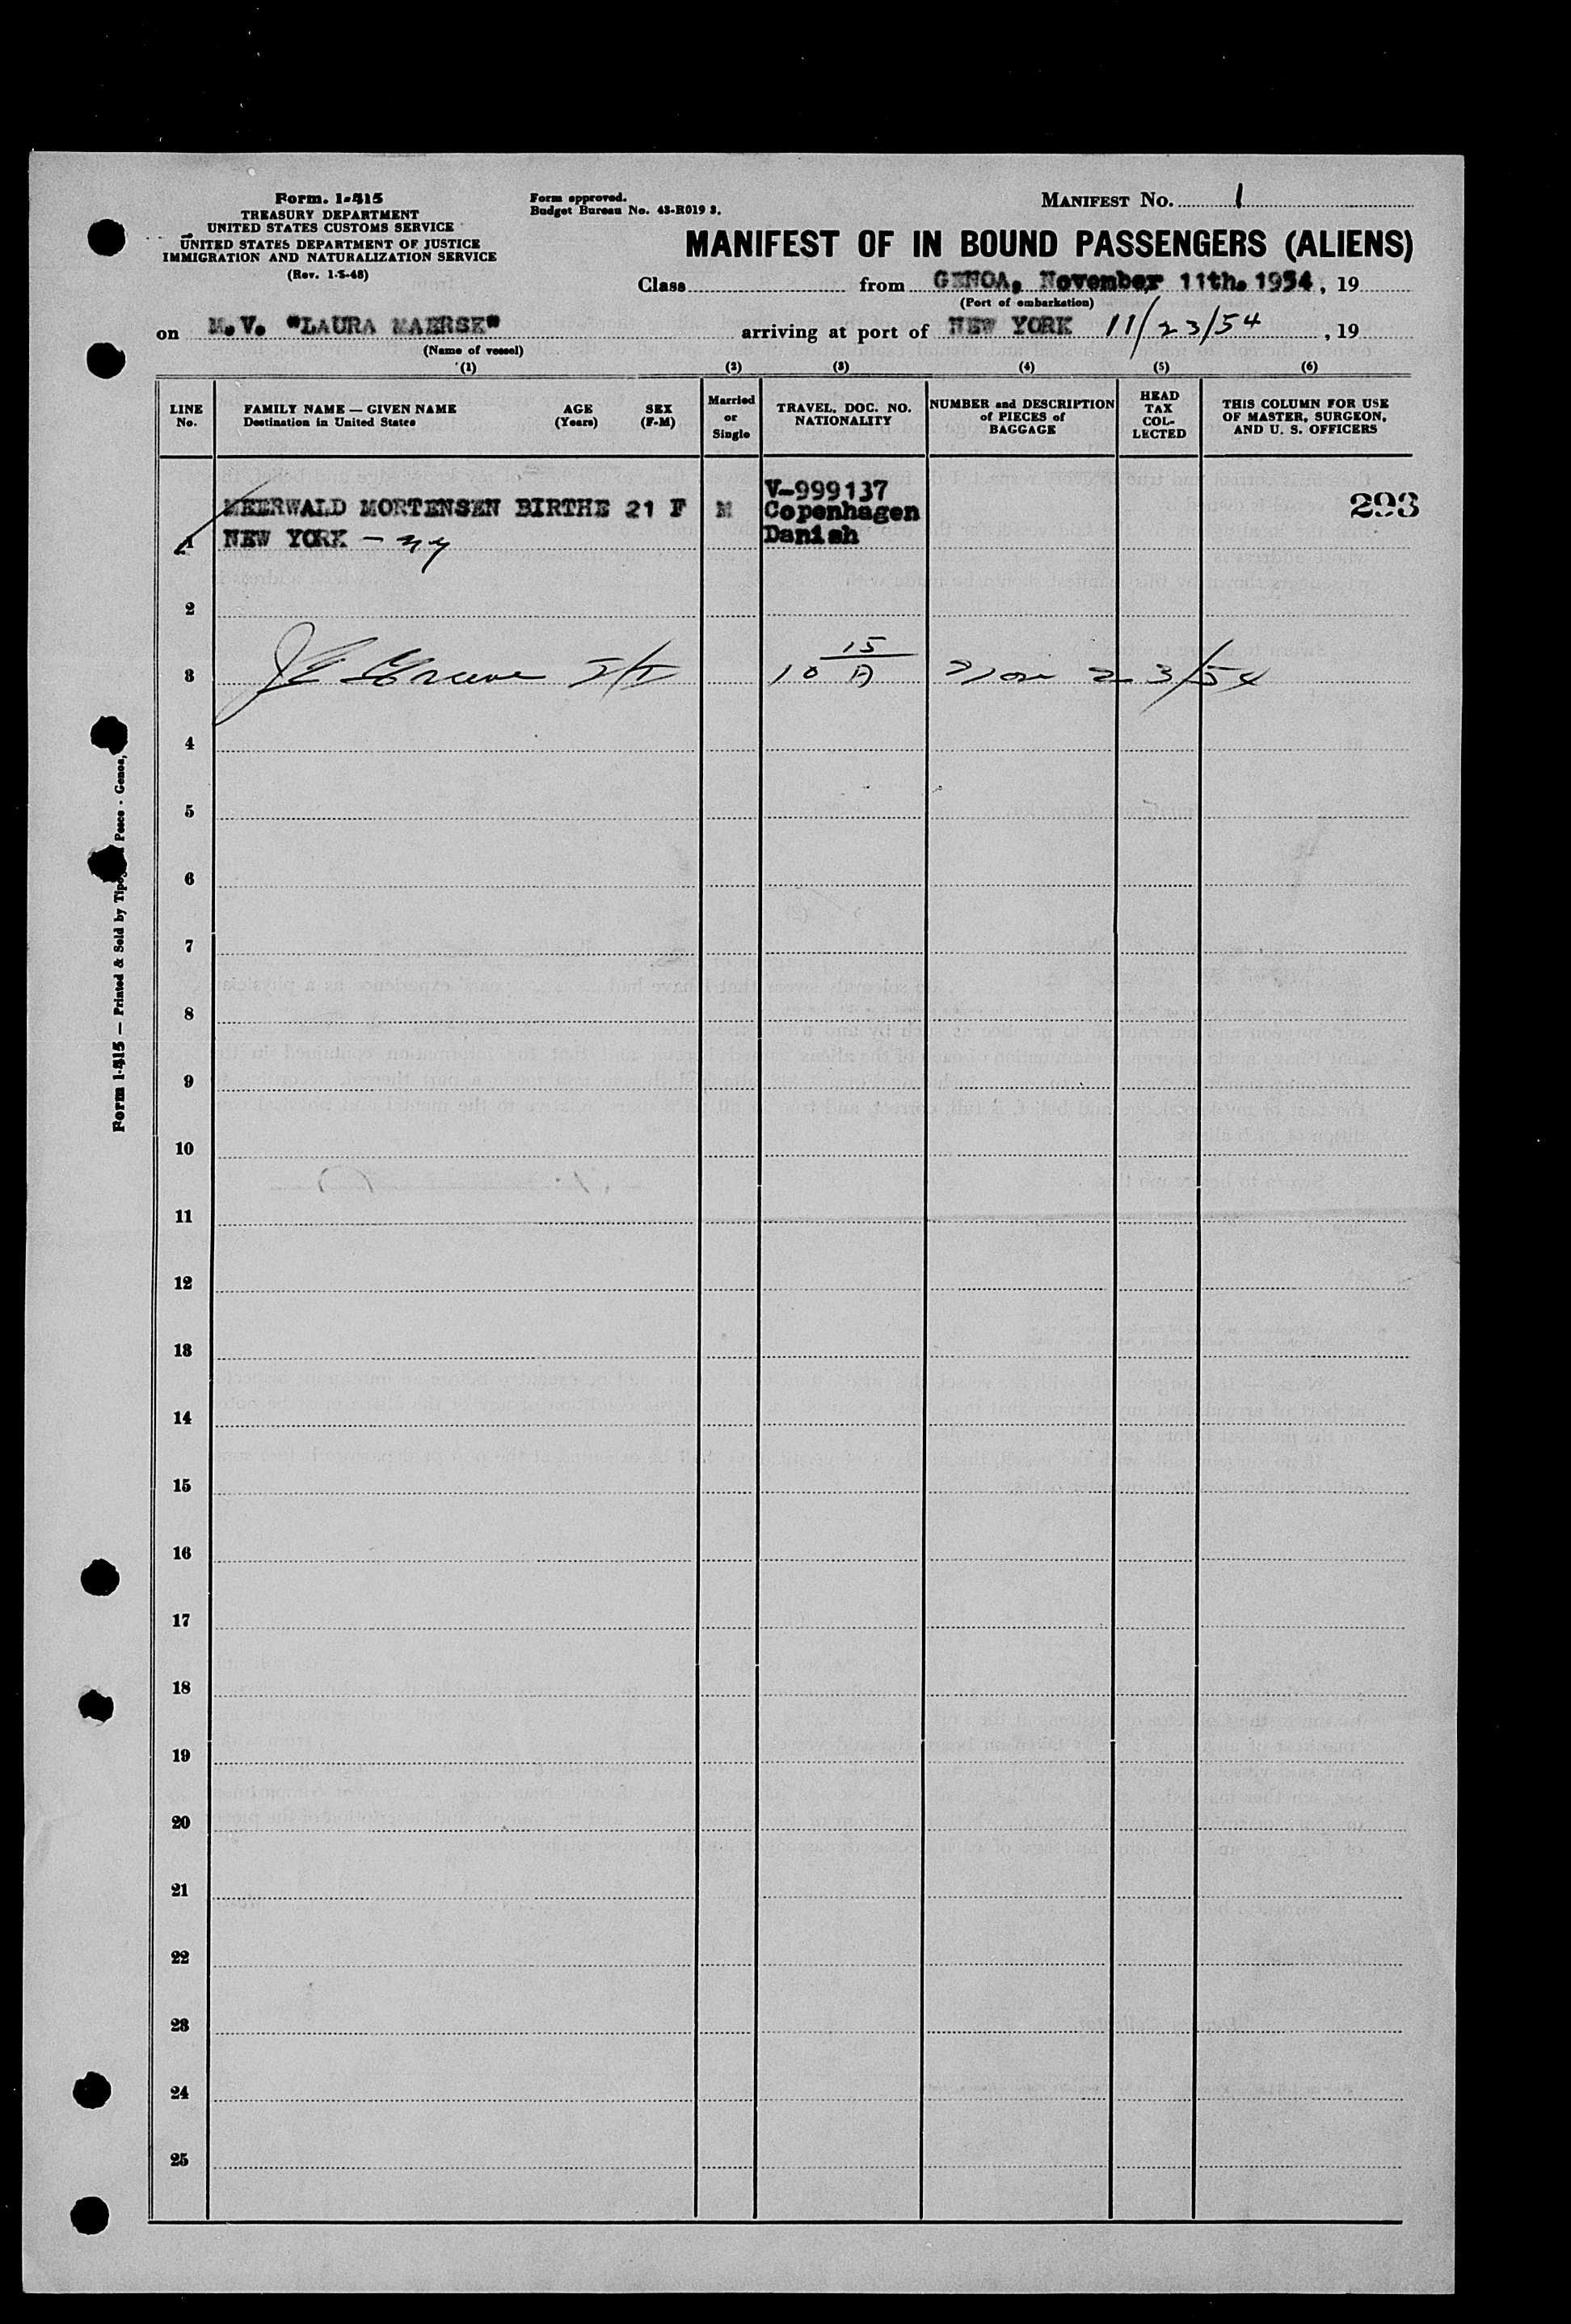 Form. 1-415
TREASURY DEPARTMENT
UNITED STATES CUSTOMS SERVICE
UNITED STATES DEPARTMENT OF JUSTICE
IMMIGRATION AND NATURALIZATION SERVICE
(Rev. 1-3-48)
Form approved.
Budget Bureau No. 43-R019 3.
MANIFEST No. 1
MANIFEST OF IN BOUND PASSENGERS (ALIENS)
Class from GENOA, November 11th. 1954, 19
(Port of embarkation)
on M.V. "LAURA MAERSK" arriving at port of NEW YORK 11/23/54, 19
(Name of vessel)
(1) (2) (3) (4) (5) (6)
LINE No.
FAMILY NAME — GIVEN NAME AGE SEX
Destination in United States (Years) (F-M)
Married or Single
TRAVEL. DOC. NO. NATIONALITY
NUMBER and DESCRIPTION of PIECES of BAGGAGE
HEAD TAX COL- LECTED
THIS COLUMN FOR USE OF MASTER, SURGEON, AND U. S. OFFICERS
V-999137
MEERWALD MORTENSEN BIRTHE 21 F M Copenhagen 293
1 NEW YORK - NY Danish
2
3 10 15 A Nov 23/54
4
5
6
7
8
9
10
11
12
13
14
15
16
17
18
19
20
21
22
23
24
25
Form 1-415 — Printed & Sold by Pesce - Genoa,